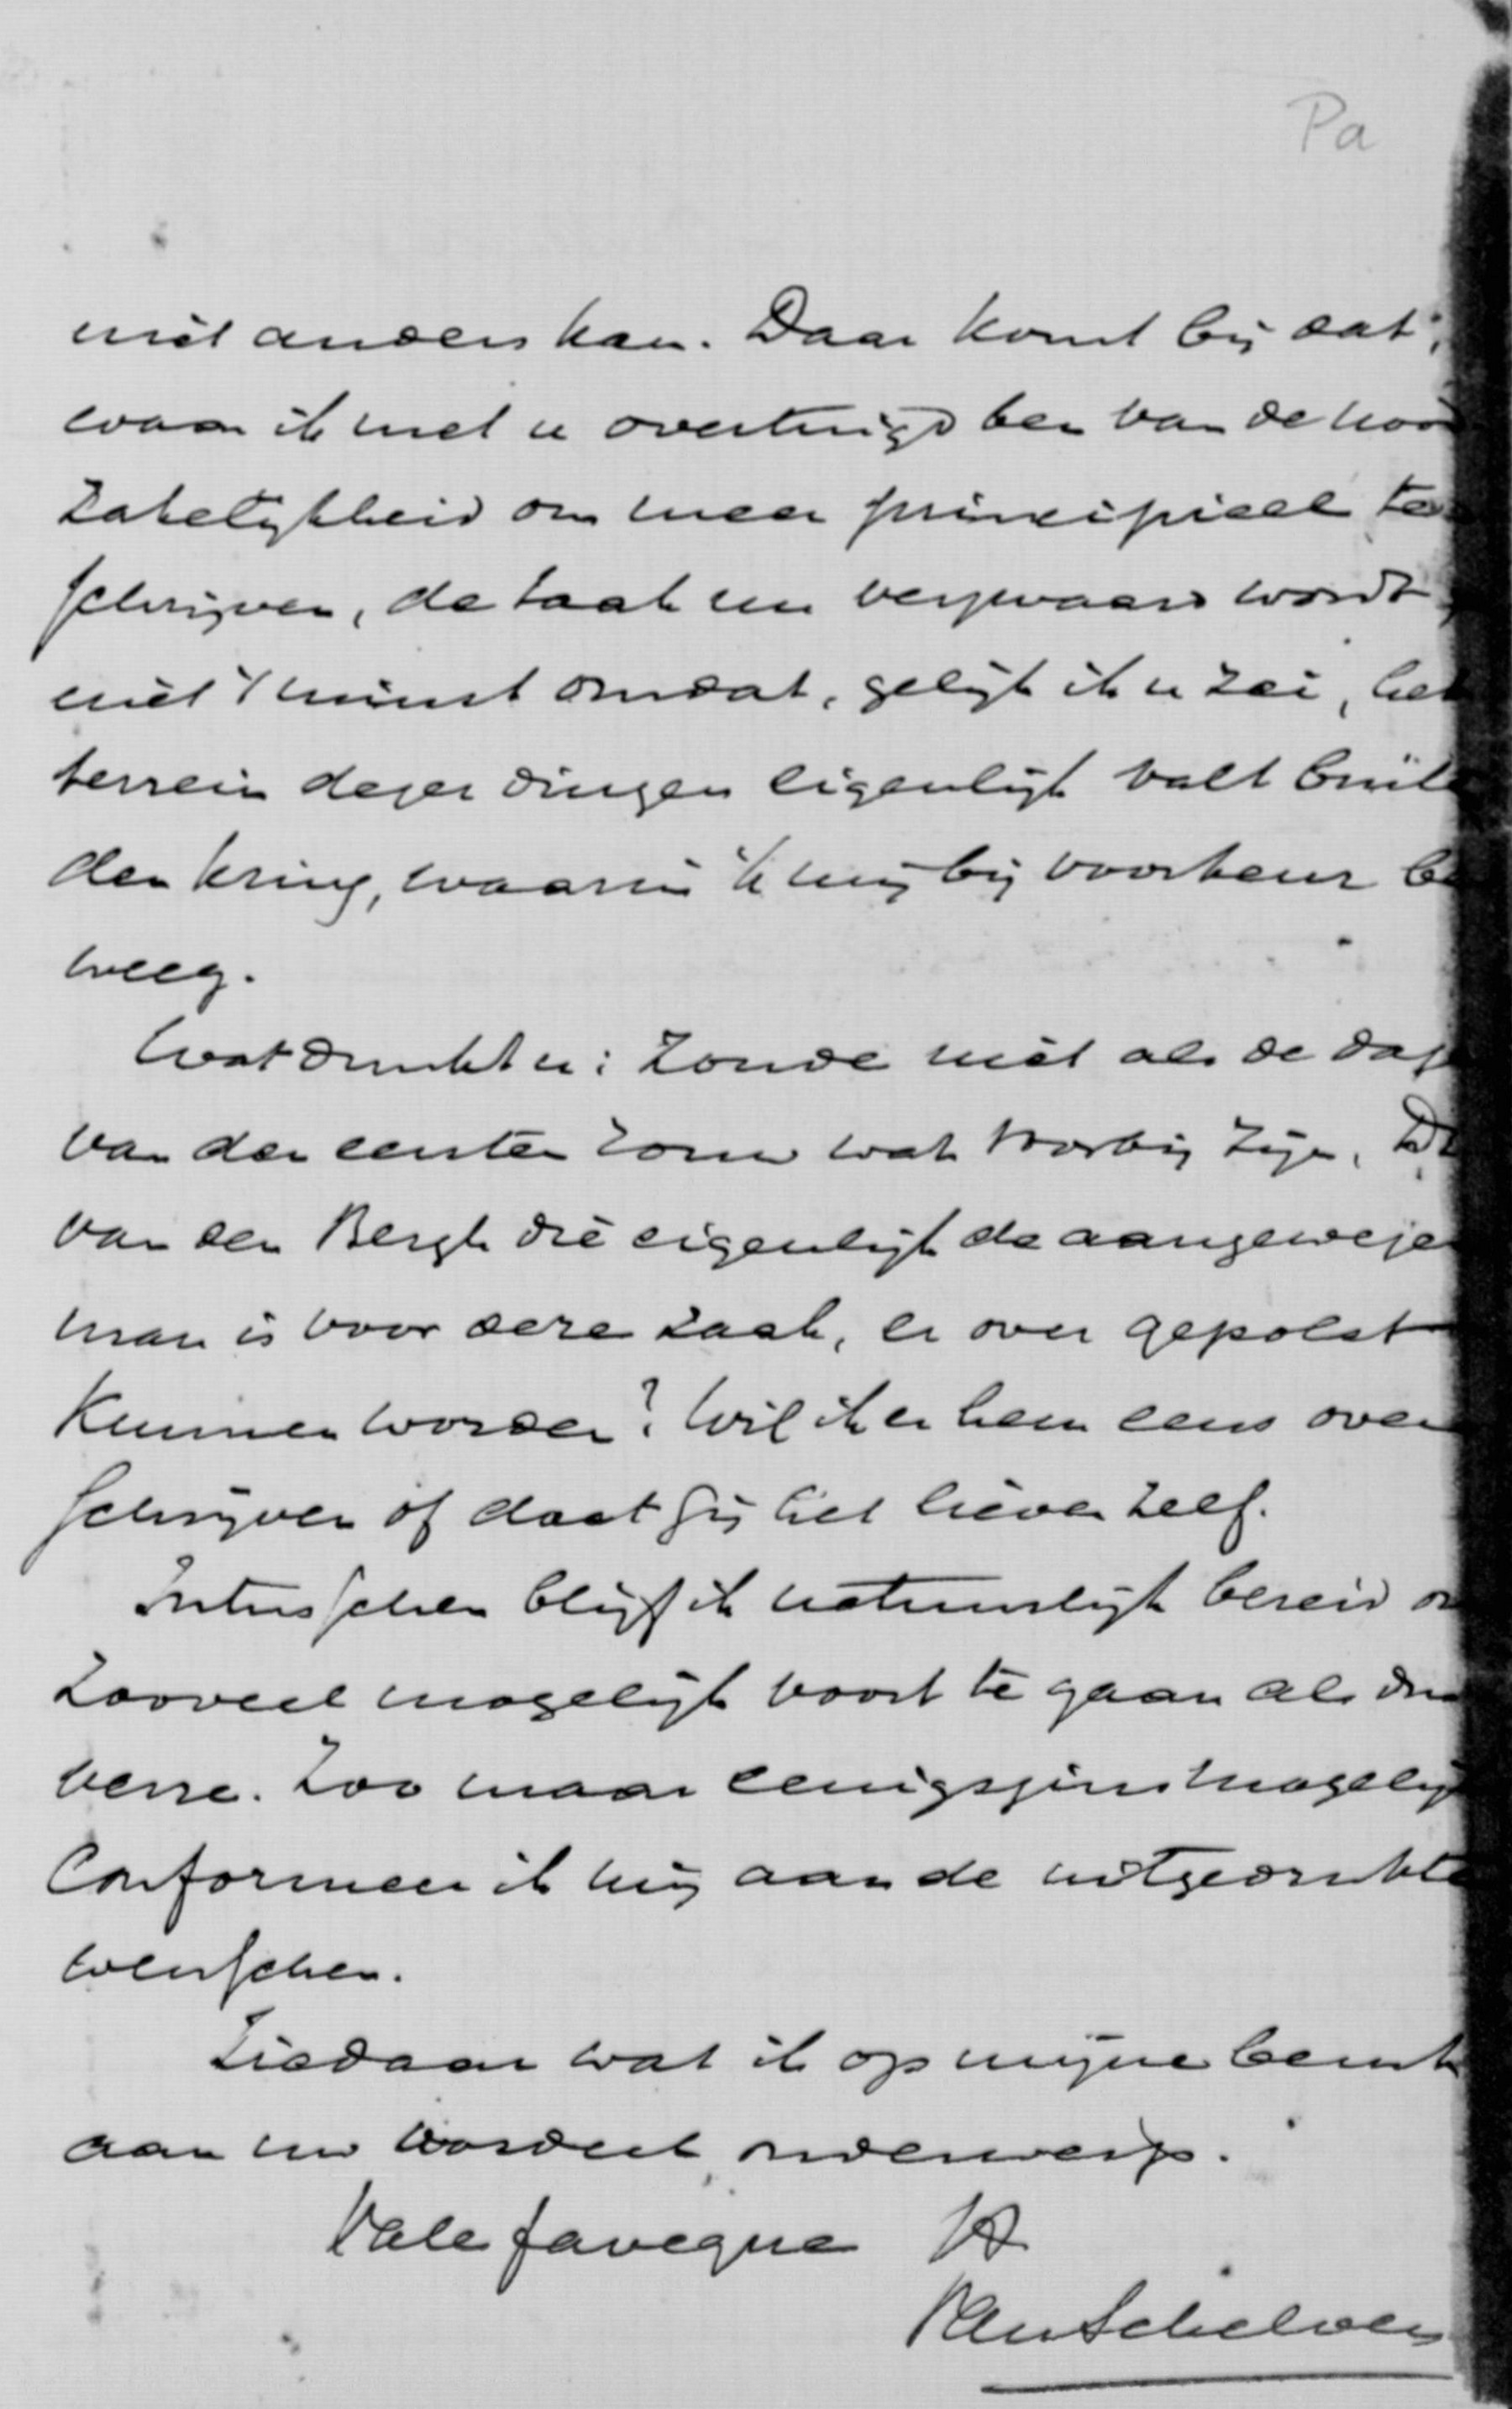 Pa
niet anders kan. Daar komt bij dat,
waar ik met u overtuigd ben van de nood
zakelijkheid om meer principieel te
schrijven, de taak me verzwaard wordt,
niet 't minst omdat, gelijk ik u zei, het
terrein dezer dingen eigenlijk valt buite
den kring, waarin ik mij bij voorkeur be
weeg.
Wat dunkt u: Zoude niet als de dage
van den eersten toorn wat voorbij zijn, Dr
van den Bergh die eigenlijk de aangewezen
man is voor deze zaak, er over gepolst
kunnen worden? Wil ik er hem eens over
schrijven of doet gij het liever zelf.
Intusschen blijf ik natuurlijk bereid om
zooveel mogelijk voort te gaan als dus
verre. Zoo maar eenigszins mogelijk
Conformeer ik mij aan de uitgedrukte
wenschen.
Ziedaar wat ik op mijne beurt
aan uw oordeel onderwerp.
Vale faveque tt
Van Schelven